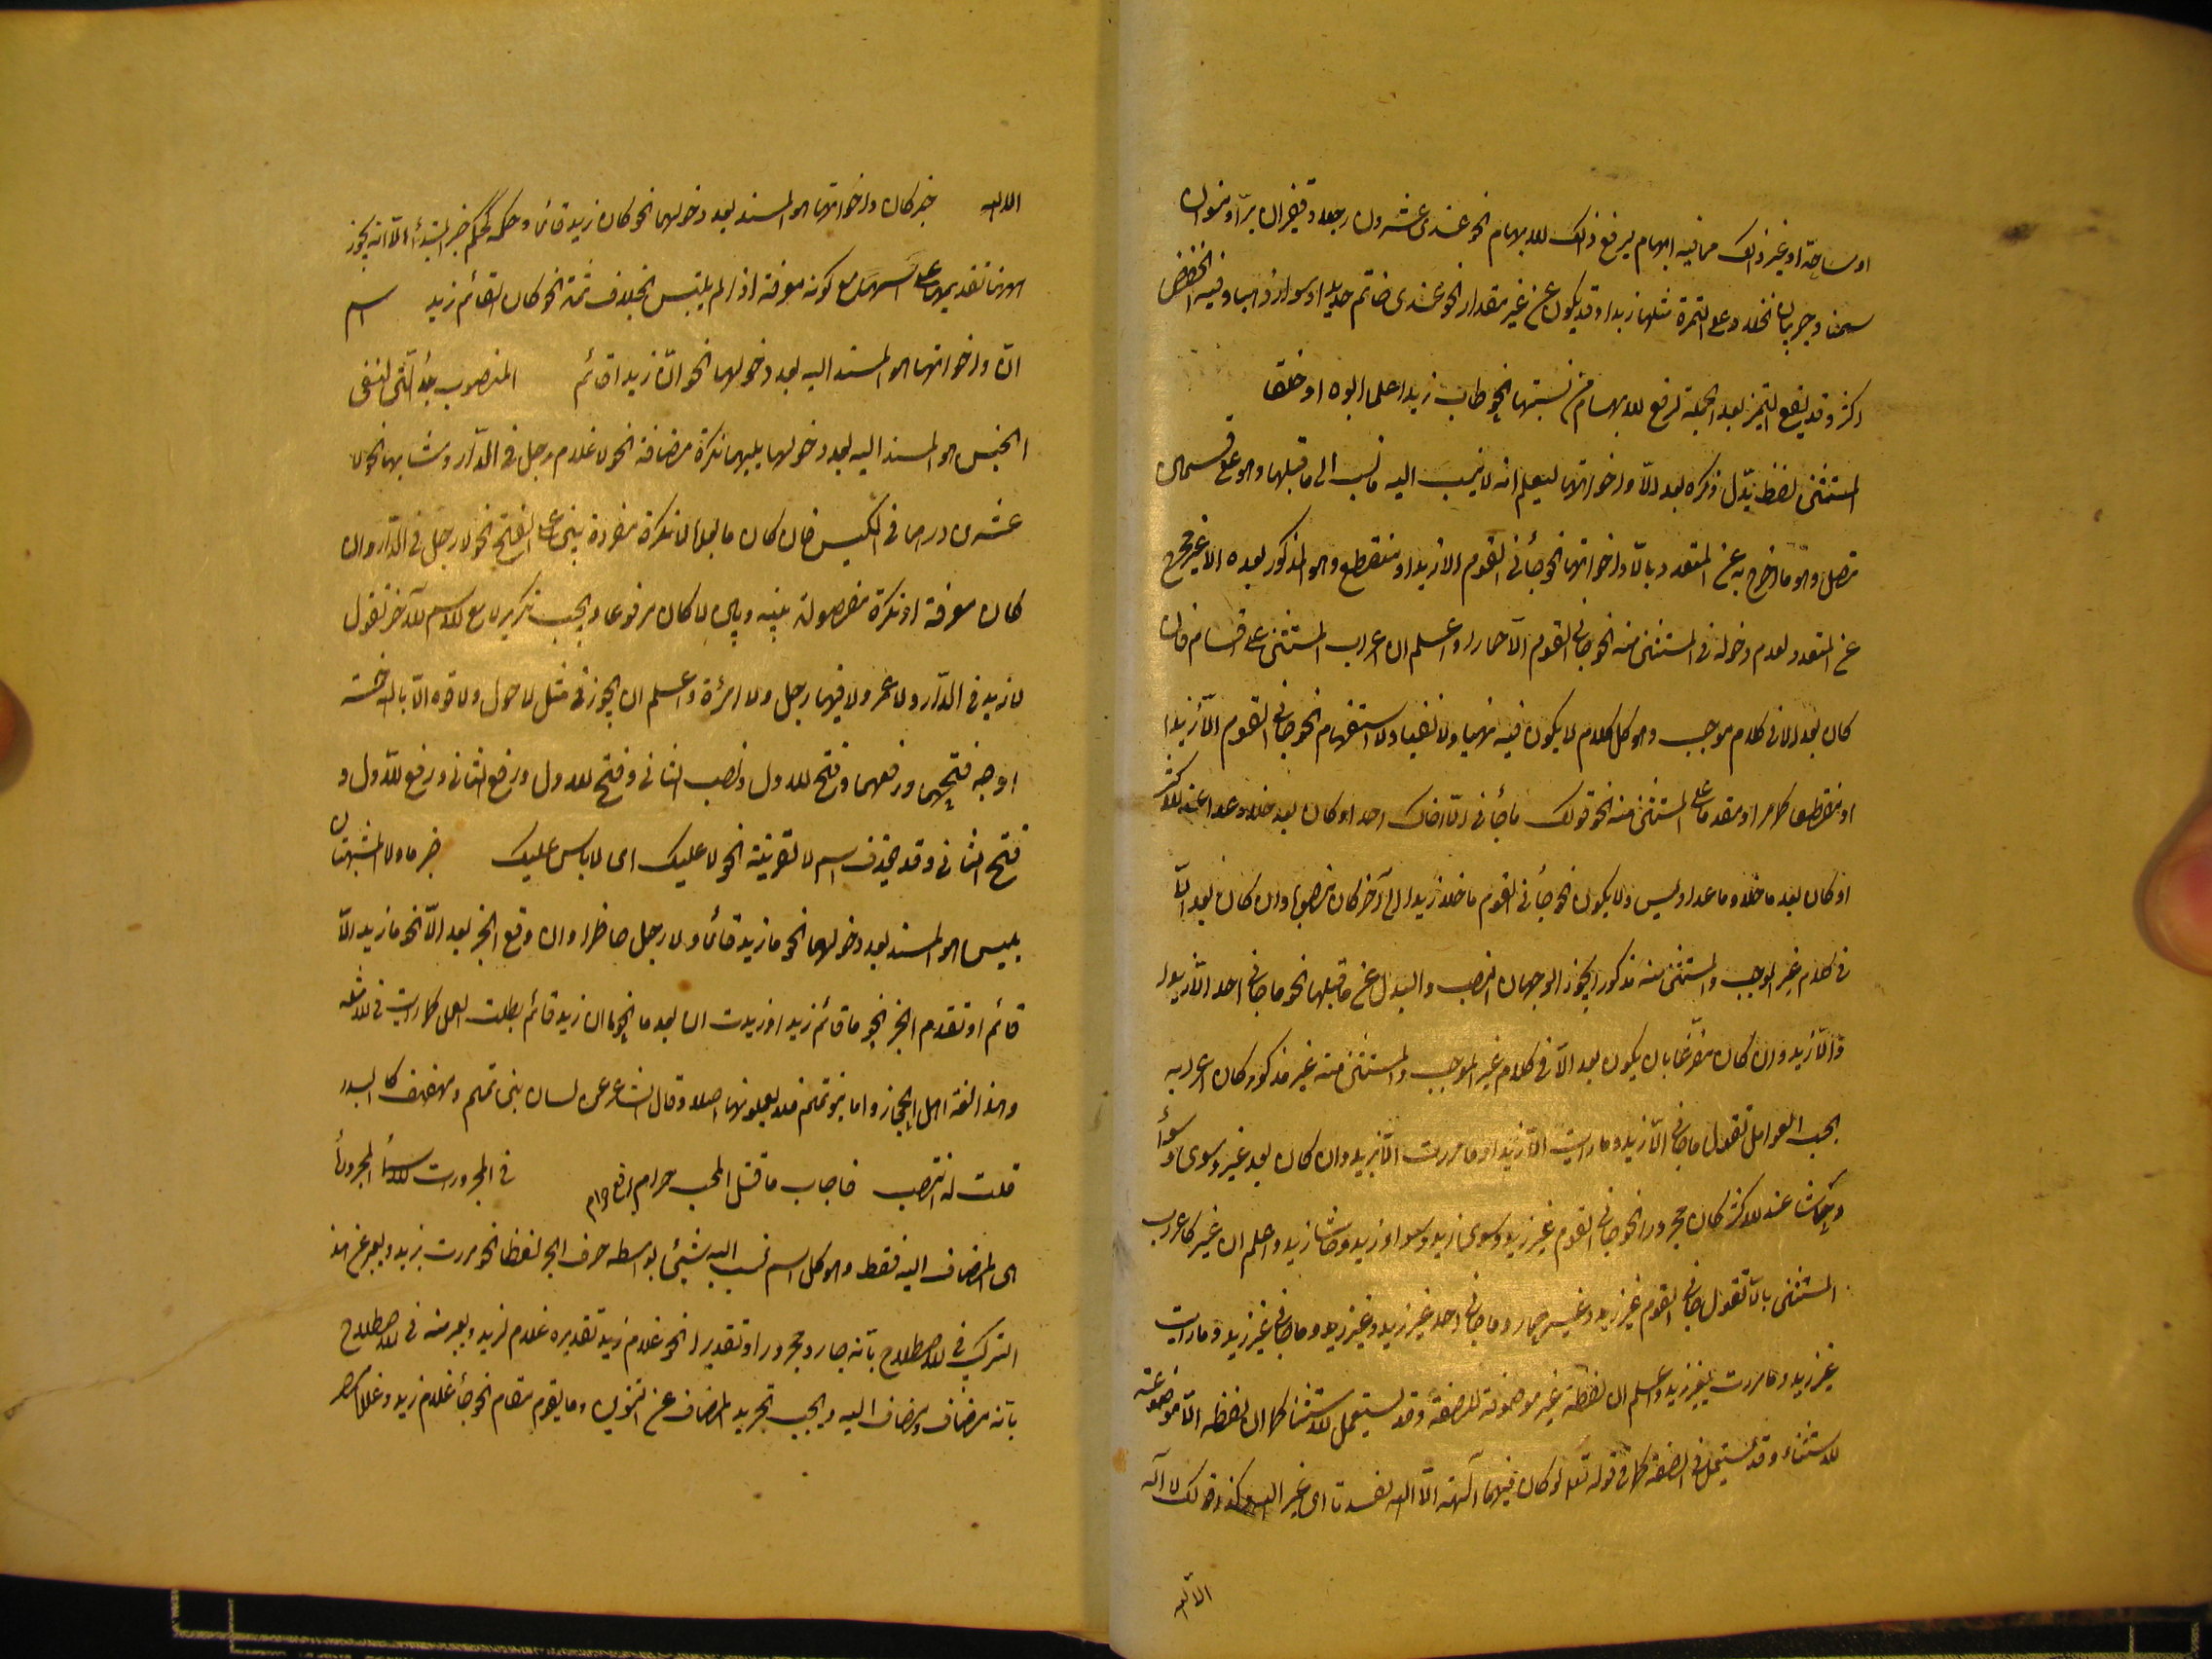 او مساحة او غير ذلك مما فيه ابهام يرفع ذلك الابهام نحو عندى عشرون رجلا وقفيزان برّا ومنوان
سمنا وجريبان نخلا وعلى التمرة مثلها زبدا وقد يكون عن غير مقدار نحو عندى خاتم حديدا وسوار ذهبا وفيه الخفض
اكثر وقد يقع التميز بعد الجملة لرفع الابهام من نسبتها نحو طاب زيد اعلما ابوه او خلقا
المستثنى لفظ يذكر بعد الّا واخواتها ليعلم انه لا ينسب اليه ما نسب الى ما قبلها وهو على قسمان
متصل وهو ما اخرج به عن المتعدد بالّا واخواتها نحو جائنى القوم الا زيدا ومنقطع وهو المذكور بعده الا غير مخرج
عن المتعدد لعدم دخوله فى المستثنى منه نحو جائنى القوم الّا حمارا واعلم ان اعراب المستثنى على اقسام فان
كان بعد الا فى كلام موجب وهو كل كلام لا يكون فيه نهيا ولا نفيا ولا استفهام نحو جائنى القوم الّا زيدا
او منقطعا كما مر او مقدما على المستثنى منه نحو قولك ما جائنى الّا اخاك احد او كان بعد خلا وعدا عند الاكثر
او كان بعد ما خلا وما عدا وليس ولا يكون نحو جائنى القوم ما خلا زيدا الى آخر كان منصوبا وان كان بعد الّا
فى كلام غير الموجب والمستثنى منه مذكور يجوز الوجهان النصب والبدل عن ما قبلها نحو ما جائنى احد الّا زيدا
والّا زيد وان كان مفرّغا بان يكون بعد الّا فى كلام غير الموجب والمستثنى منه غير مذكور كان اعرابه
بحسب العوامل تقول ما جائنى الّا زيد وما رايت الّا زيدا وما مررت الّا بزيد وان كان بعد غير وسوى وسوآء
وحاشا عند الاكثر كان مجرورا نحو جائنى القوم غير زيد وسوى زيد وسواء زيد وحاشا زيد واعلم ان غير كاعراب
المستثنى بالّا تقول جائنى القوم غير زيد وغير حمار وما جائنى احد غير زيد وغير زيد وما جائنى غير زيد وما رايت
غير زيد وما مررت بغير زيد واعلم ان لفظة غير موضوعة للصفة وقد يستعمل للاستثنا كما ان لفظه الّا موضوعة
للاستثناء وقد يستعمل فى الصفة كما فى قوله تعالى لو كان فيهما آلهة الّا الله لفسدتا اى غير الله وكذا قولك لا اله
الا الله
الا الله خبر كان واخواتها هو المسند بعد دخولها نحو كان زيد قائما وحكمه كحكم خبر المبتدأ الّا انه يجوز
هنا تقديمها على اسمها مع كونه معرفة اذا لم يلتبس بخلاف ثمة نحو كان القائم زيد اسم
انّ واخواتها هو المسند اليه بعد دخولها نحو انّ زيدا قائم المنصوب بلا الّتى لنفى
الجنس هو المسند اليه بعد دخولها يليها نكرة مضافة نحو لا غلام رجل فى الدّار ومشابها نحو لا
عشرين درهما فى الكيس فان كان ما بعد لا نكرة مفردة يبنى على الفتح نحو لا رجل فى الدّار وان
كان معرفة او نكرة مفصولة بينه وبين لا كان مرفوعا ويجب تكرير لا مع الاسم الآخر تقول
لا زيد فى الدّار ولا عمرو ولا فيها رجل ولا امرأة واعلم ان يجوز فى مثل لا حول ولا قوة الّا بالله خمسة
اوجه فتحهما ورفعهما وفتح الاول ونصب الثانى وفتح الاول ورفع الثانى ورفع الاول و
فتح الثانى وقد يحذف اسم لا لقرينة نحو لا عليك اى لا باس عليك خبر ما ولا المشبهتان
بليس هو المسند بعد دخولهما نحو ما زيد قائما ولا رجل حاضرا وان وقع الخبر بعد الّا نحو ما زيد الّا
قائم او تقدم الخبر نحو ما قائم زيد او زيدت ان بعد ما نحو ما ان زيد قائم بطلت العمل كما رايت فى الامثله
وهذا لغة اهل الحجاز واما بنو تميم فلا يعملونها اصلا وقال الشاعر عن لسان بنى تميم ومهفهف كالبدر
قلت له انتسب فاجاب ما قتل المحب حرام فى المجرورات الاسماء المجرورة
هى المضاف اليه فقط وهو كل اسم نسب اليه شيئى بواسطه حرف الجر لفظا نحو مررت بزيد ويعبر عن هذا
التركيب فى الاصطلاح بانّه جار ومجرور او تقديرا نحو غلام زيد تقديره غلام لزيد ويعبر عنه فى الاصطلاح
بانّه مضاف ومضاف اليه ويجب تجريد المضاف عن التنوين وما يقوم مقام نحو جائنى غلام زيد وغلاما